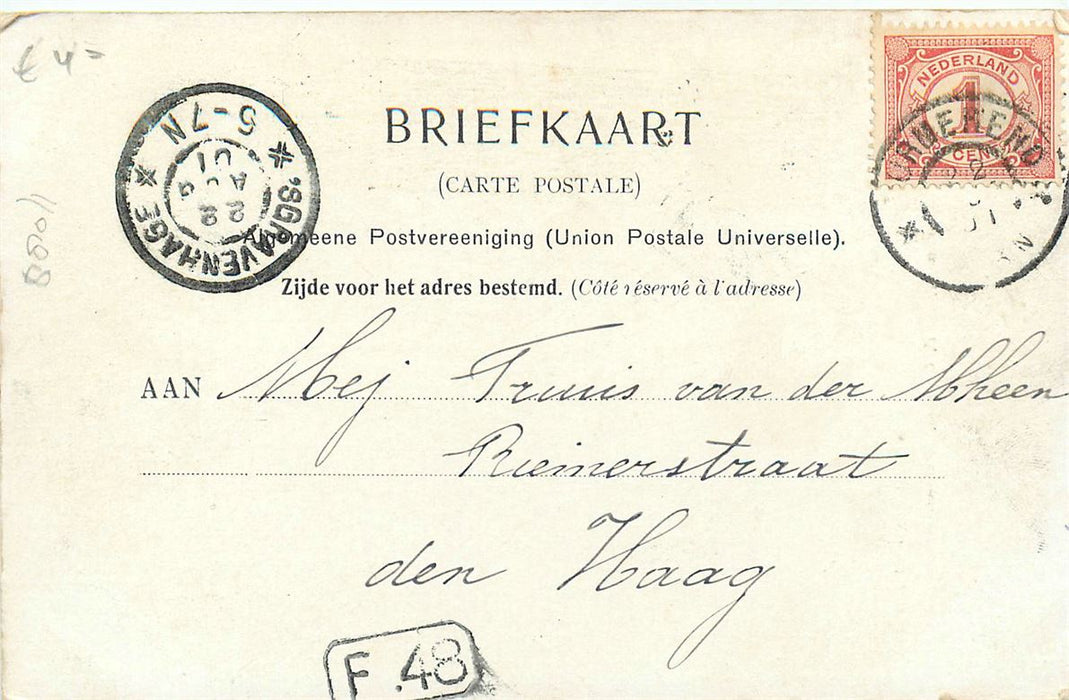 € 4 =
NEDERLAND
1
CENT
5-7N
'SGRAVENHAGE
BRIEFKAART
(CARTE POSTALE)
Algemeene Postvereeniging (Union Postale Universelle).
Zijde voor het adres bestemd. (Côté réservé à l'adresse)
AAN Mej Truus van der Mheen
Riemerstraat
den Haag
F.48